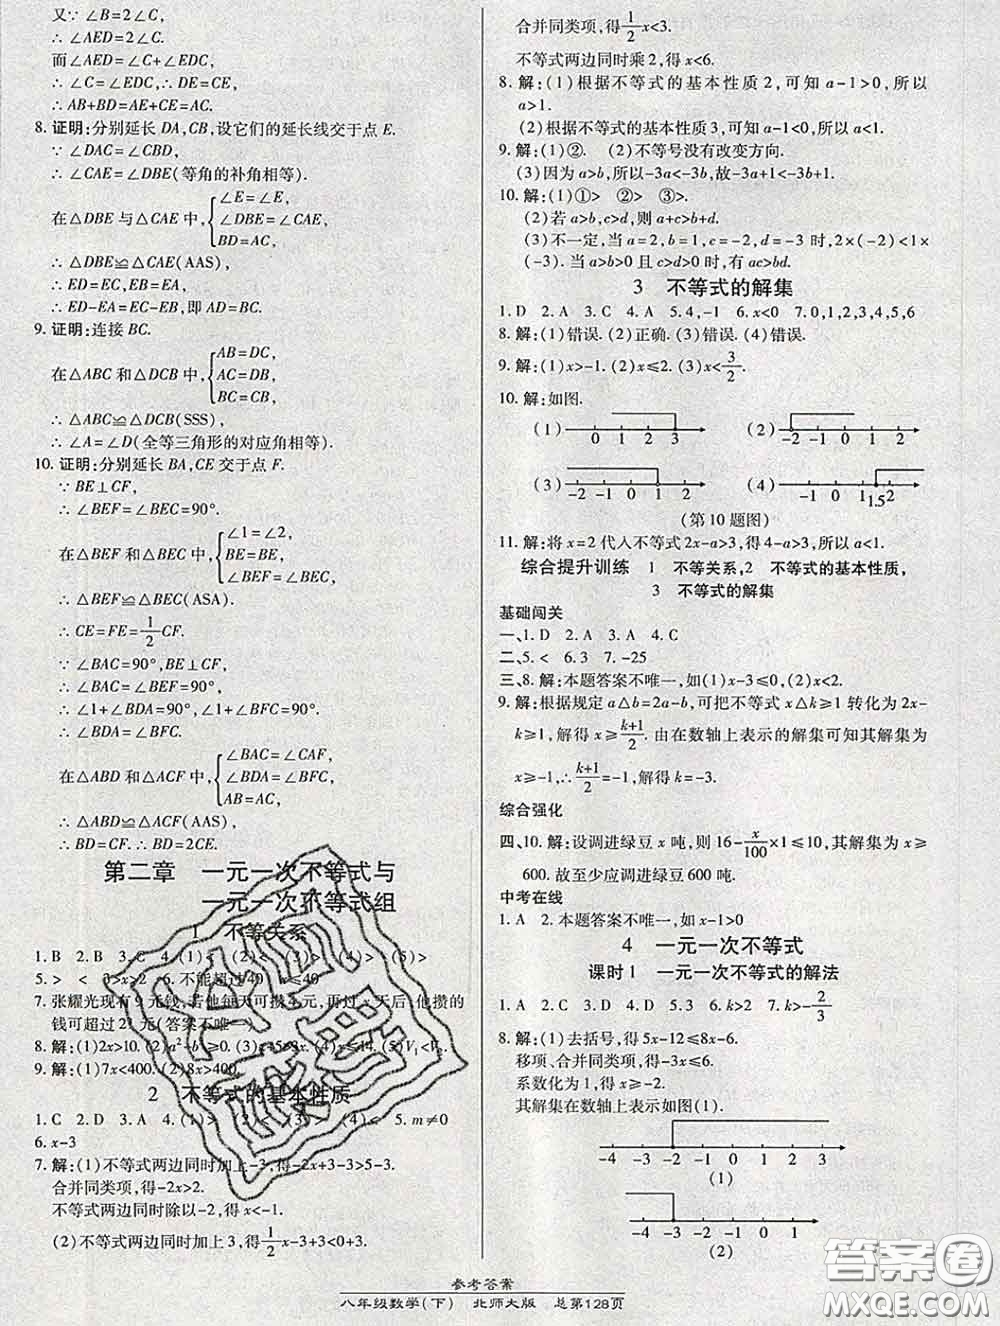 又∵ ∠B=2∠C,
∴ ∠AED=2∠C.
而∠AED=∠C+∠EDC,
∴ ∠C=∠EDC,∴ DE=CE,
∴ AB+BD=AE+CE=AC.
8. 证明:分别延长 DA,CB,设它们的延长线交于点 E.
∵ ∠DAC=∠CBD,
∴ ∠CAE=∠DBE(等角的补角相等).
在△DBE 与△CAE 中,
∠E=∠E,
∠DBE=∠CAE,
BD=AC,
∴ △DBE≌△CAE(AAS),
∴ ED=EC,EB=EA,
∴ ED-EA=EC-EB,即 AD=BC.
9. 证明:连接 BC.
在△ABC 和△DCB 中,
AB=DC,
AC=DB,
BC=CB,
∴ △ABC≌△DCB(SSS),
∴ ∠A=∠D(全等三角形的对应角相等).
10. 证明:分别延长 BA,CE 交于点 F.
∵ BE⊥CF,
∴ ∠BEF=∠BEC=90°.
在△BEF 和△BEC 中,
∠1=∠2,
BE=BE,
∠BEF=∠BEC,
∴ △BEF≌△BEC(ASA).
∴ CE=FE=1/2CF.
∵ ∠BAC=90°,BE⊥CF,
∴ ∠BAC=∠CAF=90°,
∴ ∠1+∠BDA=90°,∠1+∠BFC=90°.
∴ ∠BDA=∠BFC.
在△ABD 和△ACF 中,
∠BAC=∠CAF,
∠BDA=∠BFC,
AB=AC,
∴ △ABD≌△ACF(AAS),
∴ BD=CF. ∴ BD=2CE.
第二章 一元一次不等式与
一元一次不等式组
1 不等关系
1. B 2. B 3. C 4. (1)< (2)> (3)> (4)> (5)>
5. > < 3>x>2 6. 不能超过40 x≤40
7. 张耀光现有9元钱,若他每天可攒 元,再过 x 天后,他攒的
钱可超过2 元(答案不唯一)
8. 解:(1)2x>10. (2)a²- ≥0. (3)x+5≥3x. (4)x≤14. (5)V₁<V₂.
9. 解:(1)7x<400. (2)8x>400.
2 不等式的基本性质
1. C 2. D 3. A 4. (1)> (2)< (3)> (4)< 5. m≠0
6. x-3
7. 解:(1)不等式两边同时加上-3,得-2x+3-3>5-3.
合并同类项,得-2x>2.
不等式两边同时除以-2,得 x<-1.
(2)不等式两边同时加上 3,得1/2x-3+3<0+3.
合并同类项,得1/2x<3.
不等式两边同时乘 2,得 x<6.
8. 解:(1)根据不等式的基本性质 2,可知 a-1>0,所以
a>1.
(2)根据不等式的基本性质 3,可知 a-1<0,所以 a<1.
9. 解:(1)②. (2)不等号没有改变方向.
(3)因为 a>b,所以-3a<-3b,故-3a+1<-3b+1.
10. 解:(1)①> ②> ③>.
(2)若 a>b,c>d,则 a+c>b+d.
(3)不一定,当 a=2,b=1,c=-2,d=-3 时,2×(-2)<1×
(-3). 当 a>b>0 且 c>d>0 时,有 ac>bd.
3 不等式的解集
1. D 2. A 3. C 4. A 5. 4,-1 6. x<0 7. 0,1,2,3,4,5,6
8. 解:(1)错误. (2)正确. (3)错误. (4)错误.
9. 解:(1)x>-1. (2)x≤2. (3)x<3/2.
10. 解:如图.
(1) 0 1 2 3 4 (2) -2 -1 0 1 2
(3) -2 -1 0 1 2 (4) -2 -1 0 1 1.5 2
(第 10 题图)
11. 解:将 x=2 代入不等式 2x-a>3,得 4-a>3,所以 a<1.
综合提升训练 1 不等关系,2 不等式的基本性质,
3 不等式的解集
基础闯关
一、1. D 2. A 3. A 4. C
二、5. < 6. 3 7. -25
三、8. 解:本题答案不唯一,如(1)x-3≤0,(2)x<2.
9. 解:根据规定 a△b=2a-b,可把不等式 x△k≥1 转化为 2x-
k≥1,解得 x≥(k+1)/2. 由在数轴上表示的解集可知其解集为
x≥-1,∴(k+1)/2=-1,解得 k=-3.
综合强化
四、10. 解:设调进绿豆 x 吨,则 16-x/100×1≤10,其解集为 x≥
600. 故至少应调进绿豆 600 吨.
中考在线
1. A 2. 本题答案不唯一,如 x-1>0
4 一元一次不等式
课时 1 一元一次不等式的解法
1. A 2. C 3. D 4. D 5. 3 6. k>2 7. k>-2/3
8. 解:(1)去括号,得 5x-12≤8x-6.
移项、合并同类项,得-3x≤6.
系数化为 1,得 x≥-2.
其解集在数轴上表示如图(1).
-4 -3 -2 -1 0 1 2 3
(1)
-4 -3 -2 -1 0 1 2 3
(2)
参考答案
八年级数学(下) 北师大版 总第128页
答案圈
MXQE.COM